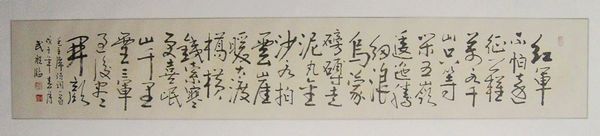 紅軍
不怕遠
征難
萬水千
山只等
閑五嶺
逶迤騰
細浪
烏蒙
磅礴走
泥丸金
沙水拍
雲崖
暖大渡
橋橫
鐵索寒
更喜岷
山千里
雪三軍
過後盡
開顏
毛主席詩詞一首
戊子年春月